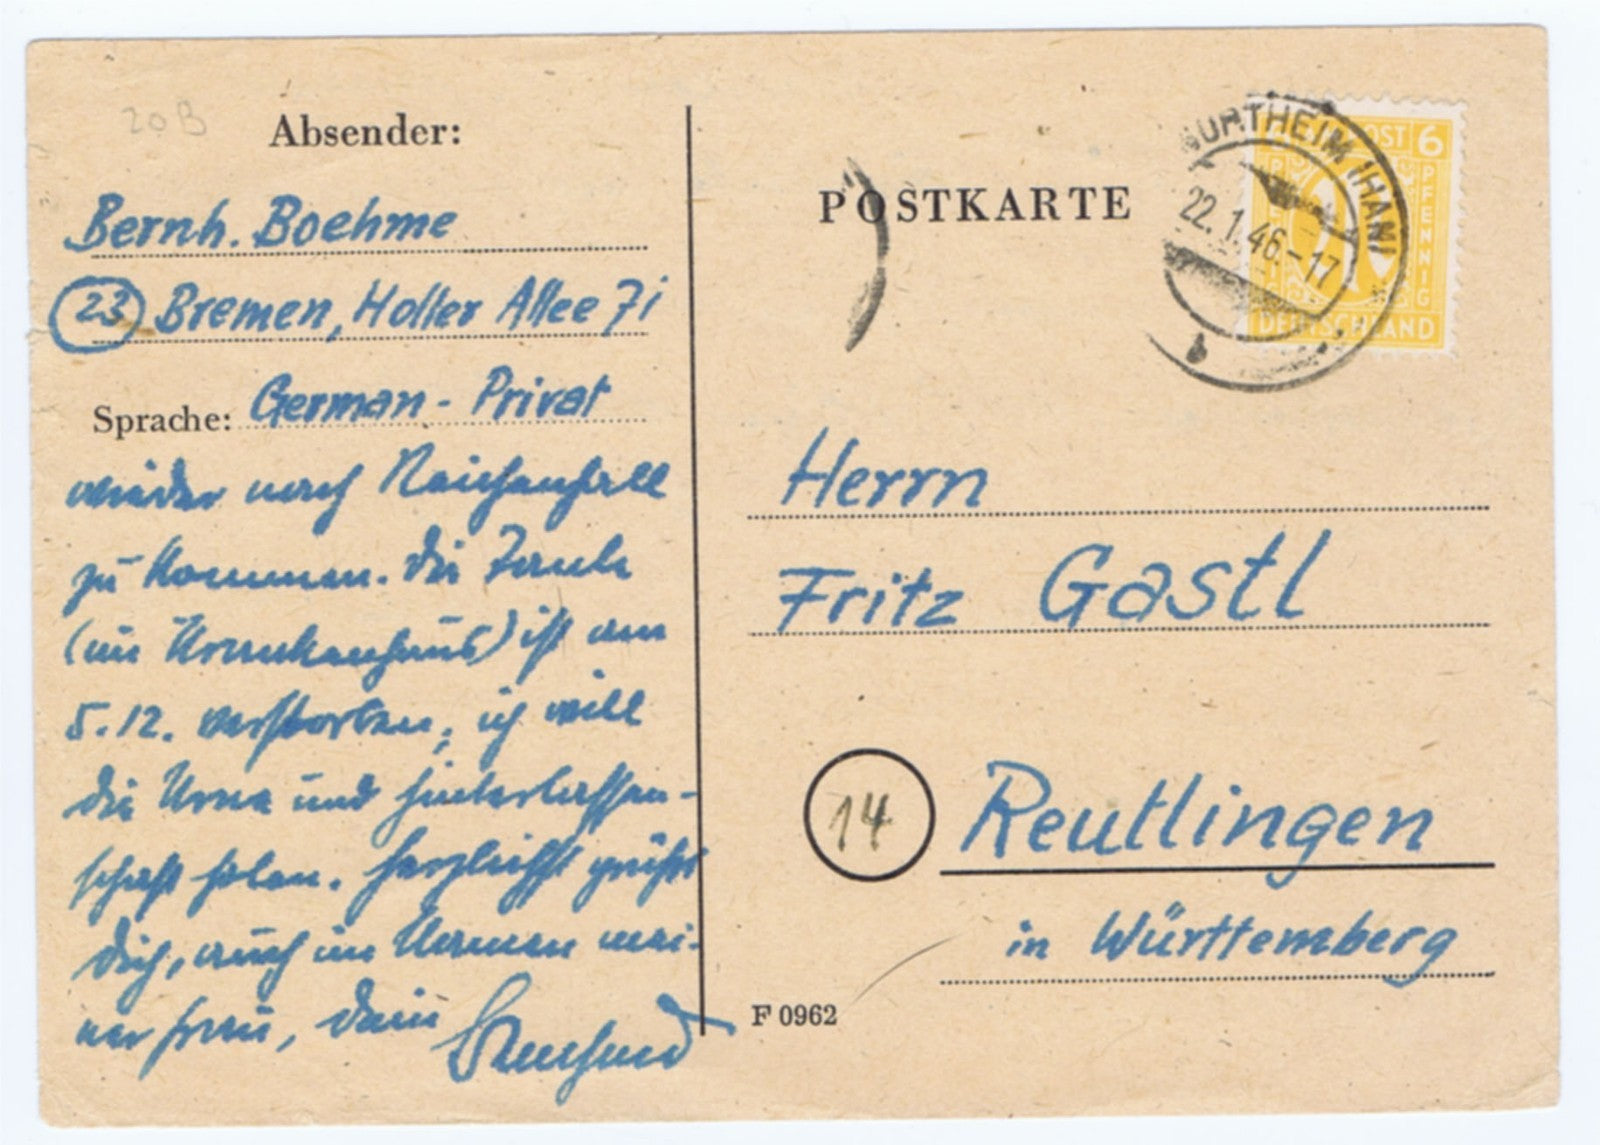 20B
Absender:
Bernh. Boehme
23 Bremen, Holler Allee 7i
Sprache: German - Privat
wieder nach Reichenhall
zu kommen. Die Tante
(im Krankenhaus) ist am
5.12. verstorben, ich will
die Urne und Hinterlassen-
schaft holen. Herzlichst grüßt
Dich, auch im Namen mei-
ner Frau, Dein
Bernhard
POSTKARTE
22.1.46.-17
b
POST 6
PFENNIG
DEUTSCHLAND
Herrn
Fritz Gastl
14 Reutlingen
in Württemberg
F 0962